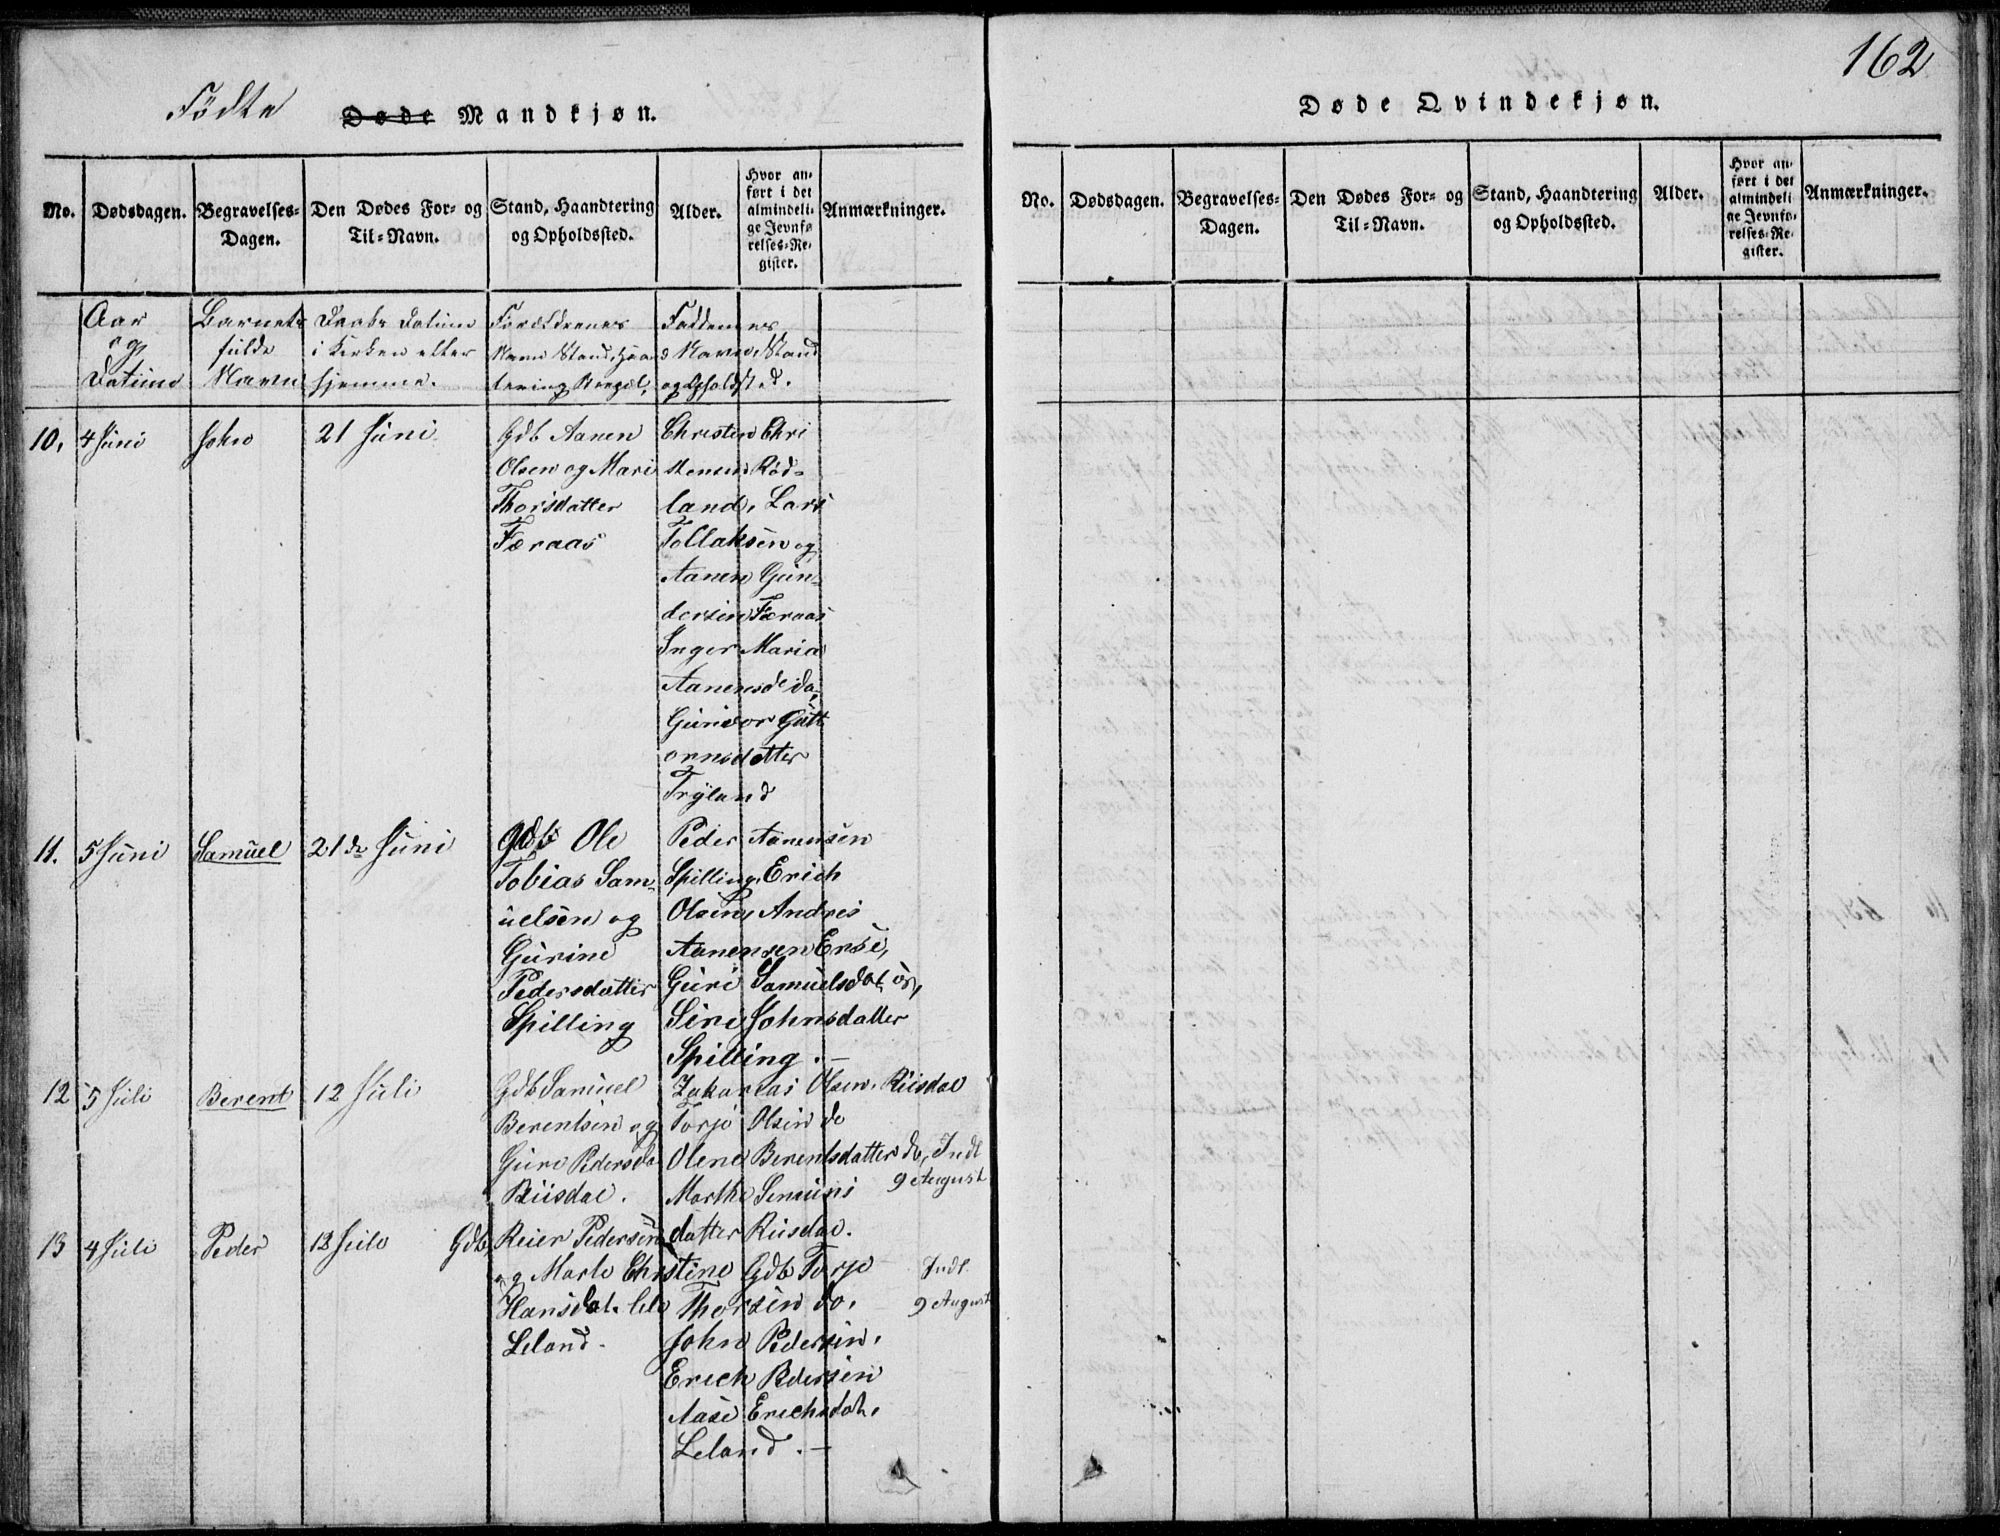 162
Födte Døde Mandkjøn.
Døde Qvindekjøn.
No. Dødsdagen. Begravelses-Dagen. Den Dødes For- og Til-Navn. Stand, Haandtering og Opholdssted. Alder. Hvor anført i det almindelige Jevnførelses-Register. Anmærkninger.
No. Dødsdagen. Begravelses-Dagen. Den Dødes For- og Til-Navn. Stand, Haandtering og Opholdssted. Alder. Hvor anført i det almindelige Jevnførelses-Register. Anmærkninger.
Aar
og
Datum
Barnets
fulde
Navn
Daabs Datum
i Kirken eller
hjemme.
Forældrenes
Navn Stand, Haan
tering
Faddernes
Navn, Stand
og Opholdsted.
10. 4 Juni
John
21 Juni
Gdb Aanen
Olsen og Mari
Thorsdatter
Færaas
Christen Chri
stensen Rød-
land, Lars
Tollaksen og
Aanen Gun-
dersen Færaas
Inger Maria
Aanensd do,
Gunvor Gutt
ormsdatter
Tryland
11. 5 Juni
Samuel
21de Juni
Gdb Ole
Tobias Sam-
uelsen og
Gurine
Pedersdatter
Spilling
Peder Aanensen
Spilling, Erich
Olsen, Andres
Aanensen
Guri Samuelsdat
Siri Johnsdatter
Spilling.—
12 5 Juli
Berent
12 Juli
Gdb Samuel
Berentsen og
Guri Pedersda
Riisdal.
Zakarias Olsen, Riisdal
Torjo Olsen do
Olene Berentsdatter do, Indl
9 August
Marthe
datter Riisdal.
13 4 Juli
Peder
12 Juli
Gdb Reier Pedersen
og Marte Christine
Hansdat.
Leland.
Gdb Torje
Thorsen do.
John Pedersen,
Erich Pedersen
Aase Erichsdat.
Leland.—
Indl.
9 August